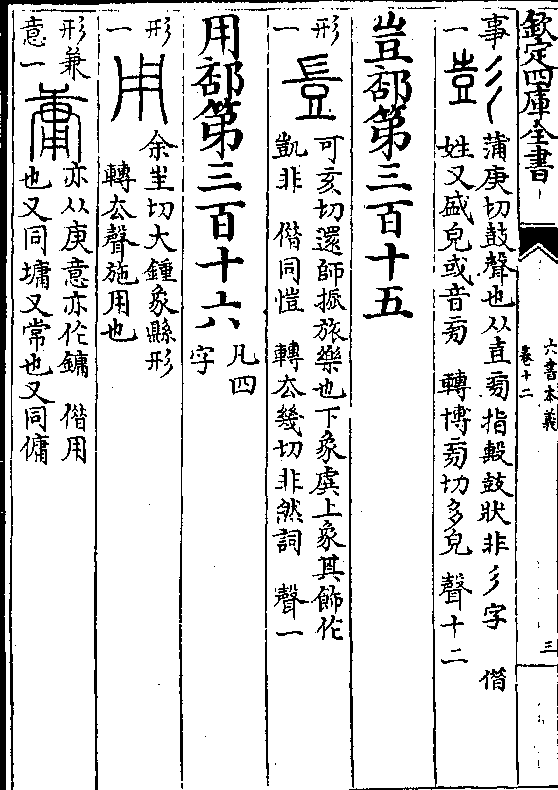 欽定四庫全書
六書本義
卷十二
三
事一
彭
蒲庚切鼓聲也从壴彡指擊鼓狀非彡字 僣
姓又盛皃或音旁 轉博旁切多皃 聲十二
豈部第三百十五
形一
豈
可亥切還師振旅樂也下象虡上象其飾作
凱非 僣同愷 轉去幾切非然詞 聲一
用部第三百十六 凡四字
形一
用
余封切大鍾象縣形
轉去聲施用也
形兼意一
庸
亦从庚意亦作鏞 僣用
也又同墉又常也又同傭